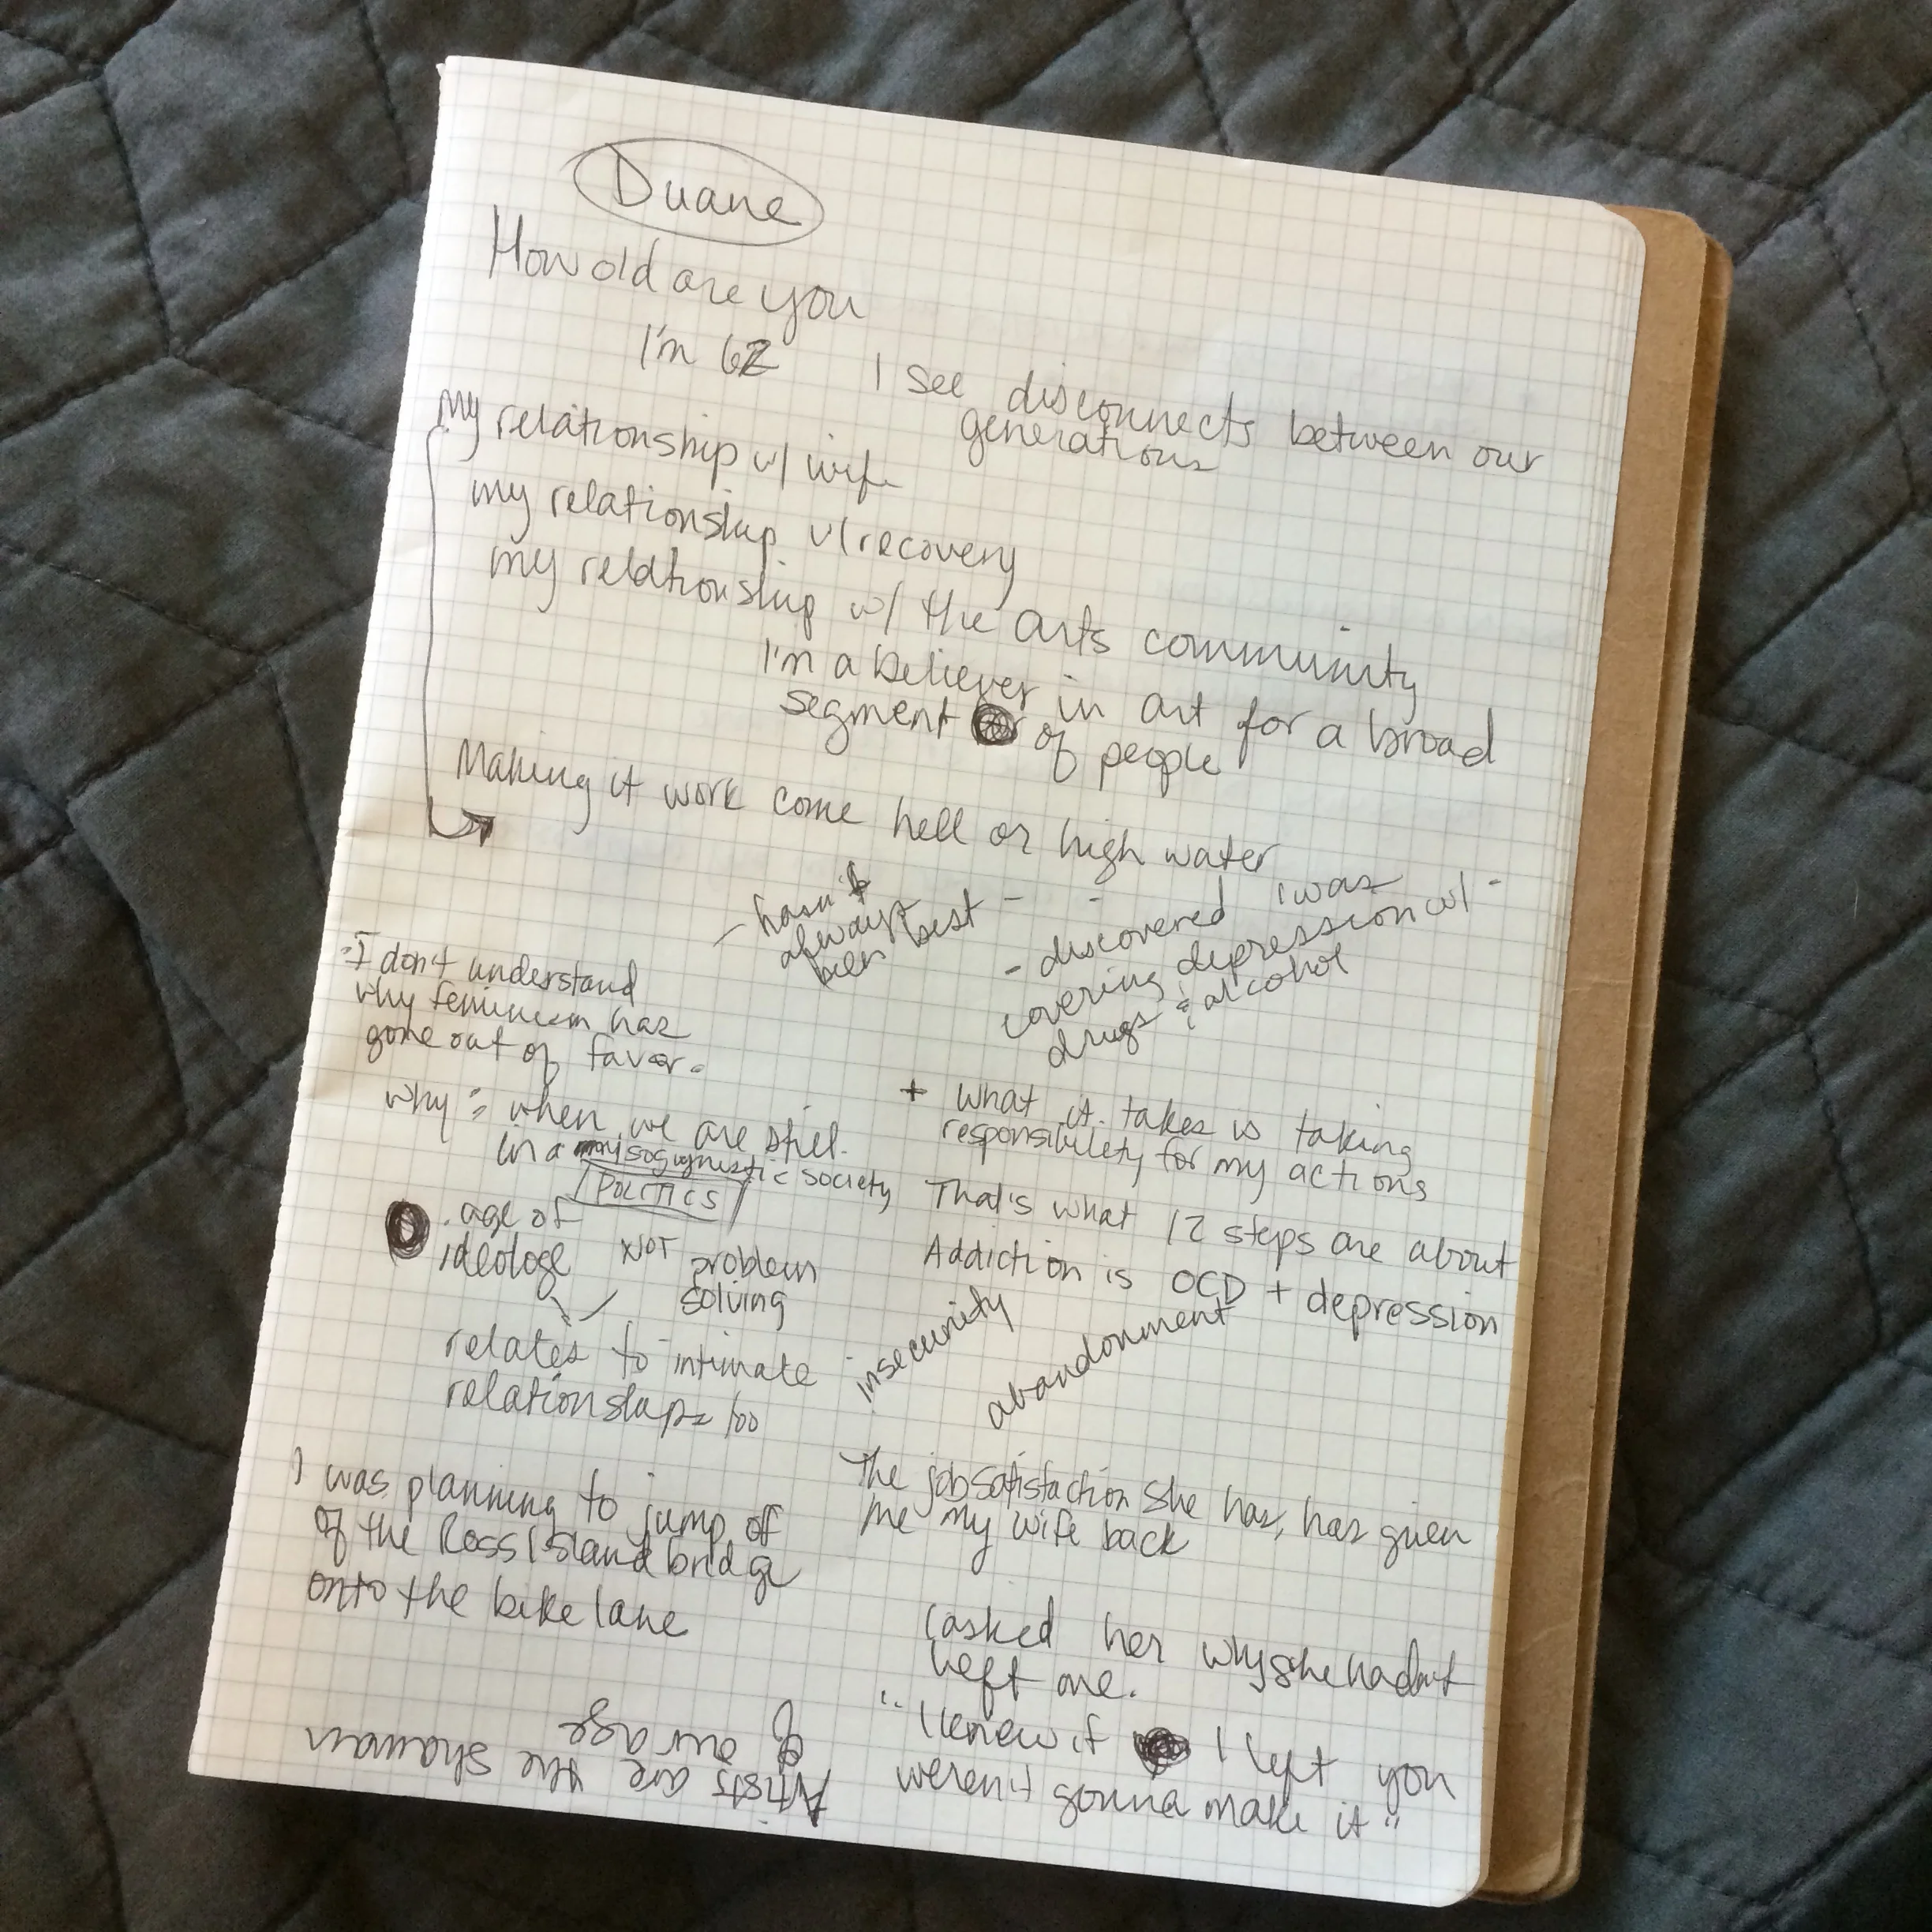 Duane
How old are you
I'm 62
I see disconnects between our
generations
My relationship w/ wife
my relationship w/ recovery
my relationship w/ the arts community
I'm a believer in art for a broad
segment of people
Making it work come hell or high water
- hasn't
always
been best -
- discovered I was
covering depression w/ -
drugs & alcohol
"I don't understand
why feminism has
gone out of favor."
why = when we are still
in a misogynestic society
POLITICS
. age of
ideologe NOT problem
solving
relates to intimate
relationships too
+ What it takes is taking
responsibility for my actions
That's what 12 steps are about
Addiction is OCD + depression
insecurity
abandonment
I was planning to jump of
of the Ross Island bridge
onto the bike lane
The job satisfaction she has, has given
me my wife back
I asked her why she hadn't
left me.
"I knew if I left you
weren't gonna make it"
Artists are the shaman
of our age